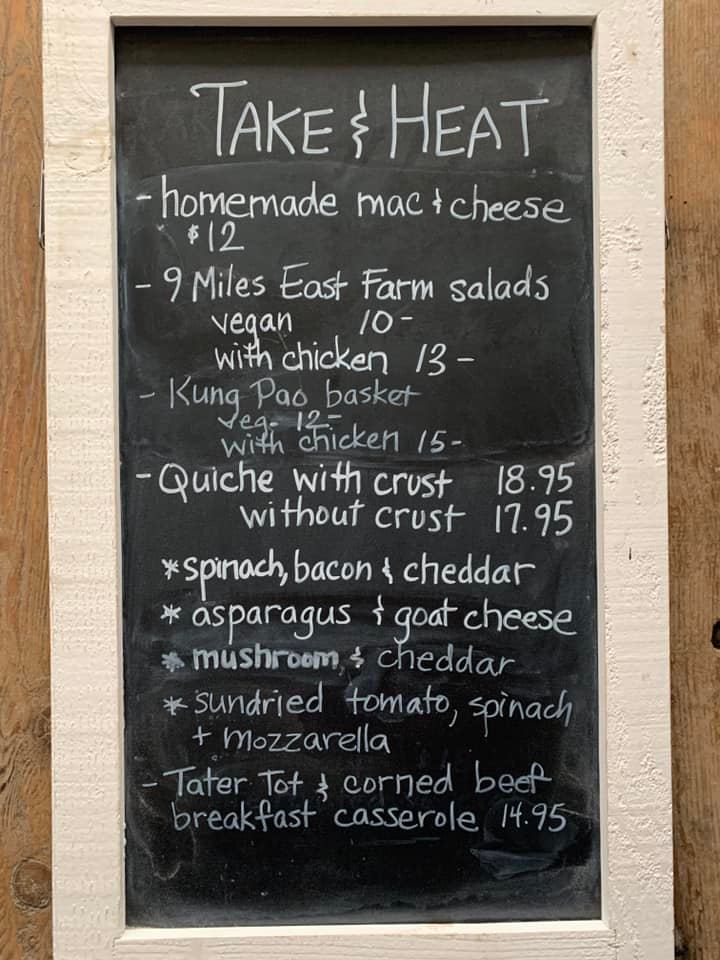 TAKE & HEAT
- homemade mac & cheese
$12
- 9 Miles East Farm salads
vegan 10-
with chicken 13-
- Kung Pao basket
veg- 12-
with chicken 15-
- Quiche with crust 18.95
without crust 17.95
* spinach, bacon & cheddar
* asparagus & goat cheese
* mushroom & cheddar
* sundried tomato, spinach
+ mozzarella
- Tater Tot & corned beef
breakfast casserole 14.95